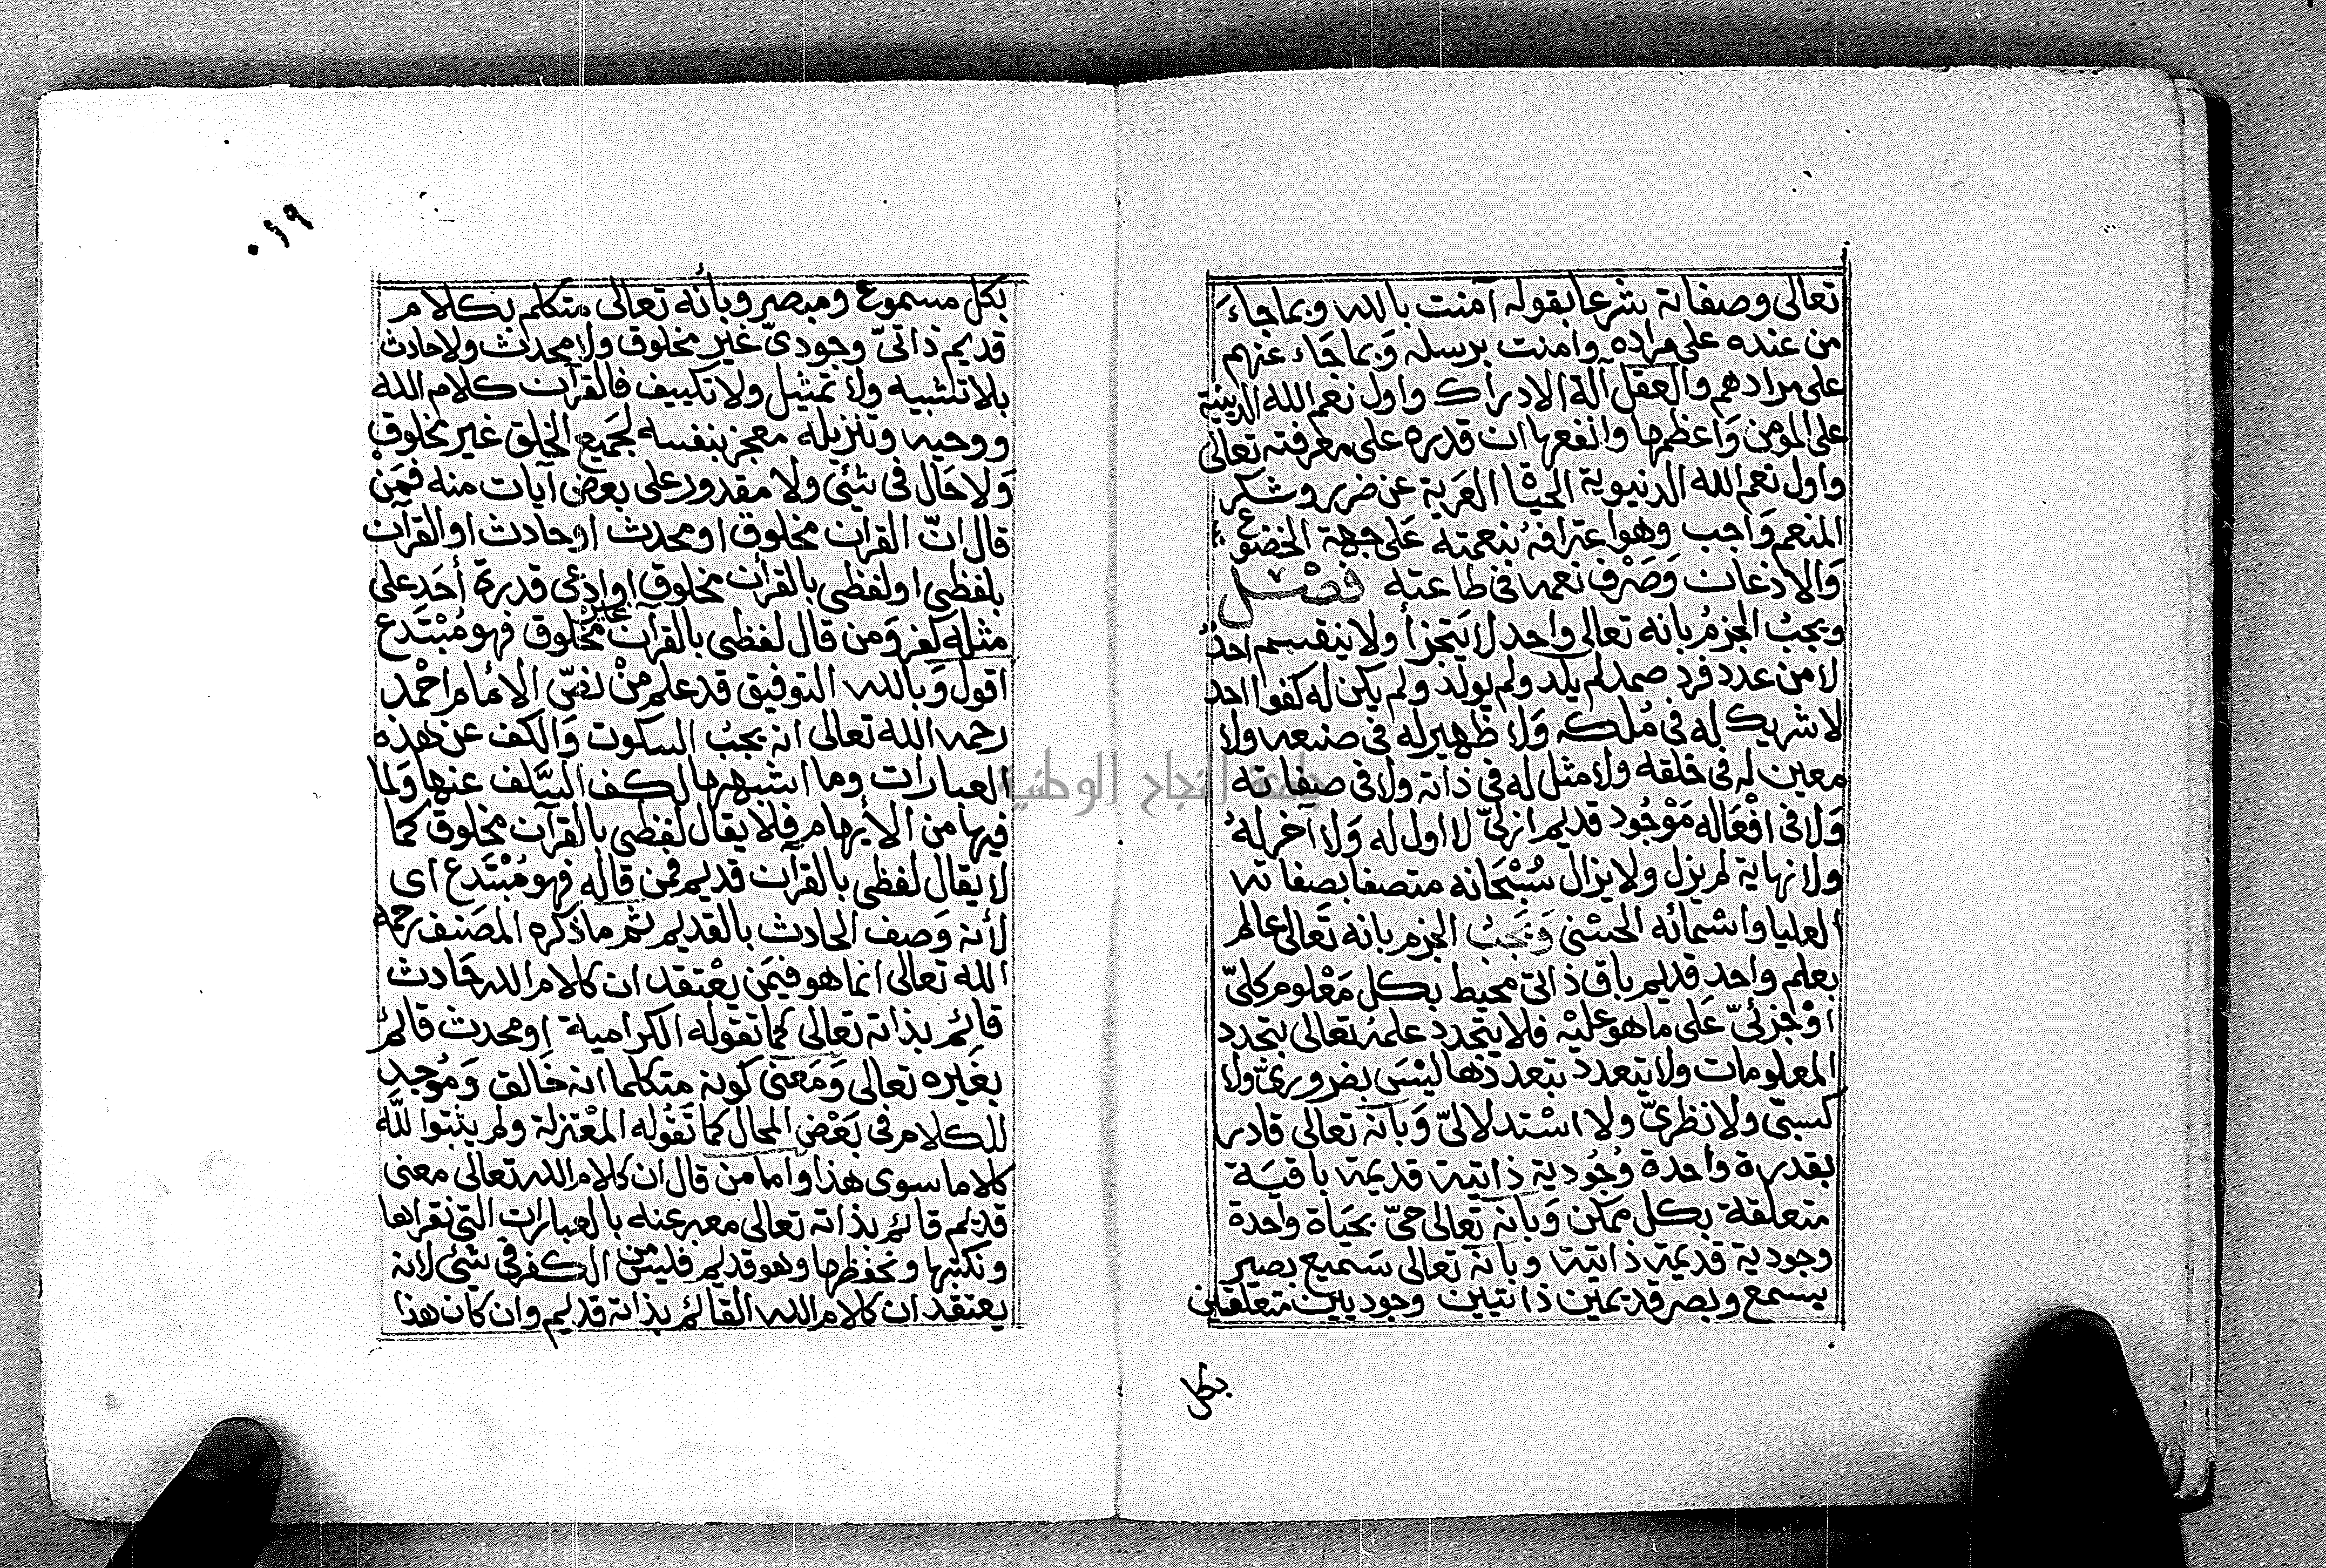 تعالى وصفاته شرعا بقوله آمنت بالله وبماجاءَ
من عنده على مراده وامنت برسله وَبماجَاء عنهم
على مرادهم والعقل آلة الادراك واول نعم الله الدينية
على المومن وَاعظمها وانفعها ان قدره على معرفته تعالى
واول نعم الله الدنيوية الحيٰاة العرية عن ضرر وشكر
المنعم وَاجب وهو اعترافهُ بنعمته عَلى جهة الخضوع
وَالاذعان وَصَرْف نعمه فى طاعته فصْل
ويجبُ الجزمُ بانه تعالى واحد لايَتجزأ ولا ينقسم احدٌ
لا من عدد فرد صمد لم يلد ولم يولد ولم يكن له كفوا احد
لا شريك له فى مُلكه وَلا ظهير له فى صنعه ولا
معين له فى خلقه ولا مثل له فى ذاته ولا فى صفاته
وَلا فى افْعَاله مَوْجُود قديم ازلىّ لا اول له وَلا آخر لهُ
ولا نهاية لم يزل ولا يزال سُبْحَانه متصفا بصفاته
العليا واسْمائه الحسْنى وَيَجبُ الجزم بانه تَعالى عالم
بعلم واحد قديم باق ذاتى محيط بكل مَعْلوم كلىّ
اوْ جزئىّ عَلى ما هو عليْه فلا يتجدد علمهُ تعالى بتجدد
المعلومات ولا يتعدد بتعددها ليْسَ بضرورىّ ولا
كسبىّ ولا نظرىّ ولا اسْتدلالىّ وَبانه تعالى قادر
بقدرة واحدة وُجُودية ذاتية قديمة باقيَة
متعلقة بكل ممكن وَبانه تعالى حىّ بحيَاة واحدة
وجودية قديمة ذاتية وبانه تعالى سَميع بصير
بسمع وبصر قديمين ذاتيين وجوديين متعلقين
بكل
٠١٩
بكل مسموع ومبصر وبأنه تعالى متكلم بكلام
قديم ذاتىّ وجودىّ غير مخلوق ولا محدث ولا حادث
بلا تشبيه ولا تمثيل ولا تكييف فالقرآن كلام الله
ووحيه وتنزيله معجز بنفسه لجَميع الخلق غير مخلوق
وَلا حَال فى شئ ولا مقدور على بعض آيات منه فمَنْ
قال انّ القرآن مخلوق او محدث او حادث او القرآن
بلفظى او لفظى بالقرآن مخلوق او ادعى قدرة أحَد على
مثله كفر وَمن قال لفظى بالقرآن غير مخلوق فهو مُبْتَدع
اقول وَبالله التوفيق قد علم منْ نصّ الامام احْمد
رحمه الله تعالى انه يجبُ السكوت وَالكف عن هذه
العبارات وما اشبهها لكف السَّلف عنها وَلما
فيها من الأيهام فلا يقال لفظى بالقرآن مخلوق كما
لا يقال لفظى بالقرآن قديم فمن قاله فهو مُبْتَدع اى
لأنه وَصف الحادث بالقديم ثم ما ذكره المصَنف رحمه
الله تعالى انما هو فيمَن يعْتقد ان كلام الله حَادث
قائم بذاته تعالى كما تقوله الكرامية او محدث قائم
بغَيره تعالى وَمَعنى كونه متكلما انه خَالق وَمُوجد
للكلام فى بَعْض المحال كما تقُوله المعْتزلة ولم يثبتوا للّه
كلاما سوى هذا واما من قال ان كلام الله تعالى معنى
قديم قائم بذاته تعالى معبر عنه بالعبارات التى نقراها
ونكتبها ونحفظها وهو قديم فليس من الكفر فى شئ لانه
يعتقد ان كلام الله القائم بذاته قديم وان كان هذا
جامعة النجاح الوطنية